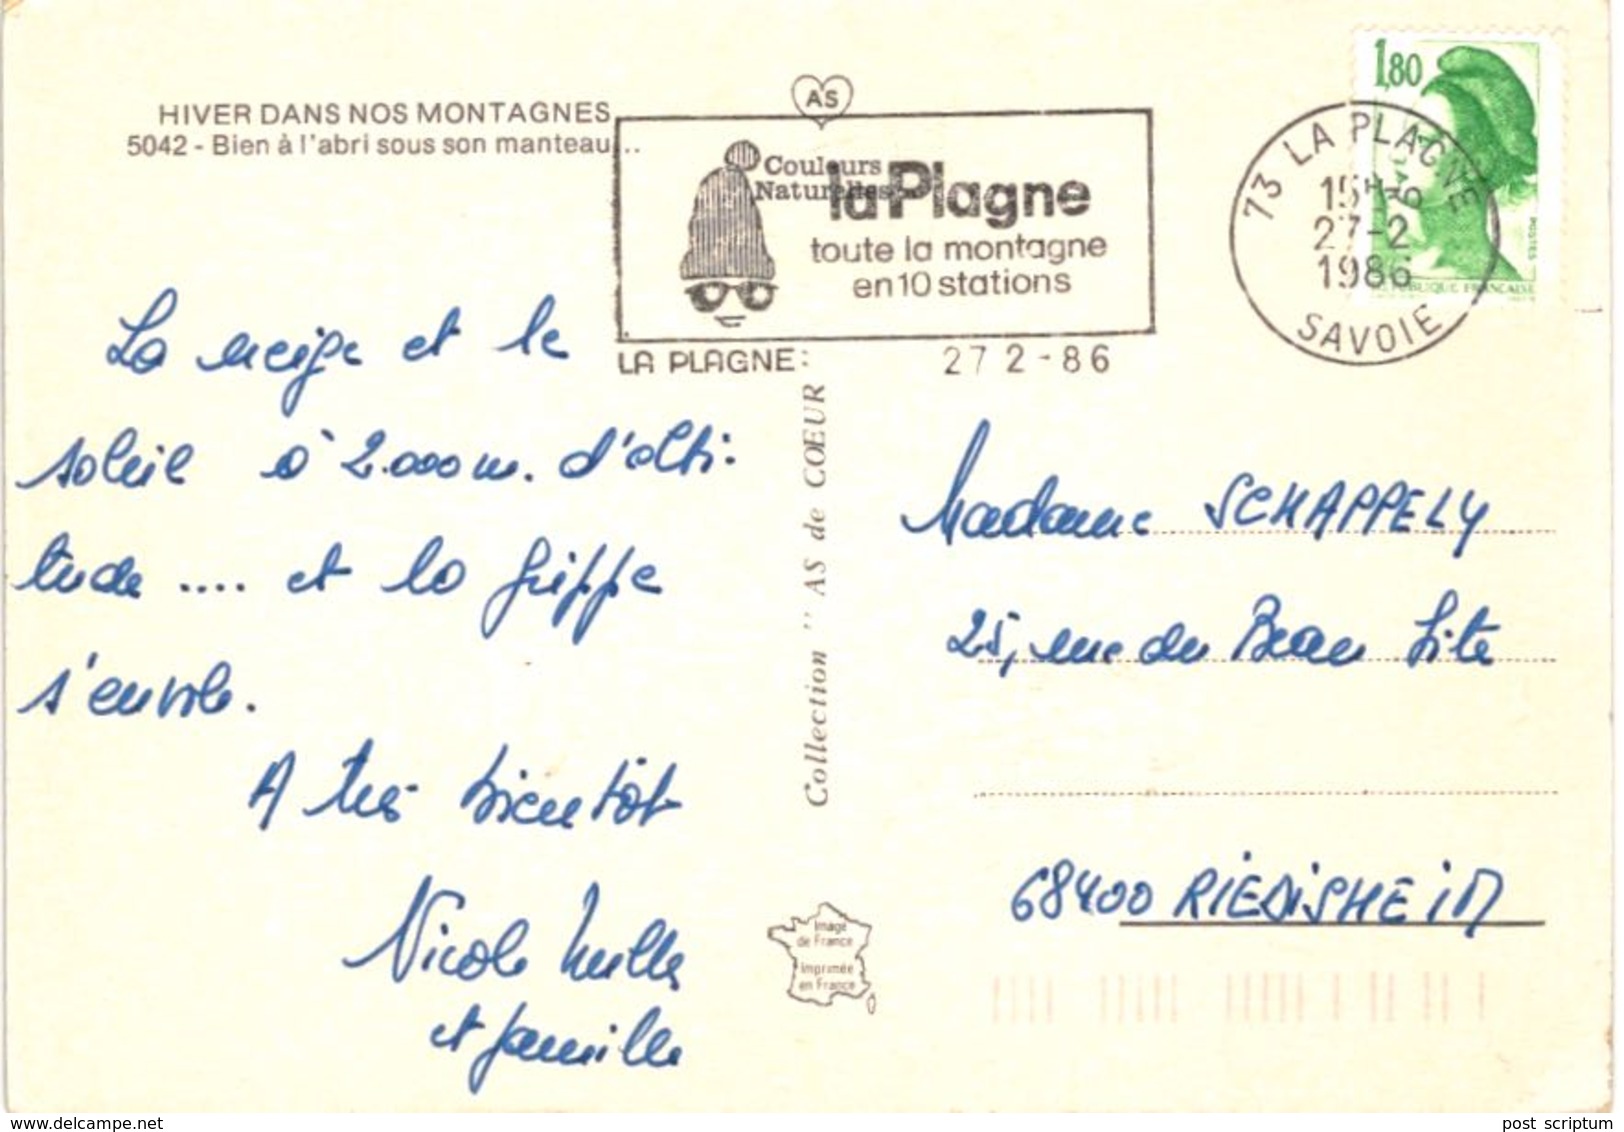 HIVER DANS NOS MONTAGNES
5042 - Bien à l'abri sous son manteau...
AS
Couleurs
Naturelles
la Plagne
toute la montagne
en 10 stations
LA PLAGNE: 27 2-86
1,80
POSTES
REPUBLIQUE FRANÇAISE
73 LA PLAGNE
15H
27-2
1986
SAVOIE
La neige et le
soleil à 2.000 m. d'alti-
tude .... et la grippe
s'envole.
A très bientôt
Nicole
et famille
Collection "AS de CŒUR
Image
de France
Imprimée
en France
Madame SCHAPPELY
25, rue du Beau Site
68400 RIEDISHEIM
delcampe.net
post_scriptum